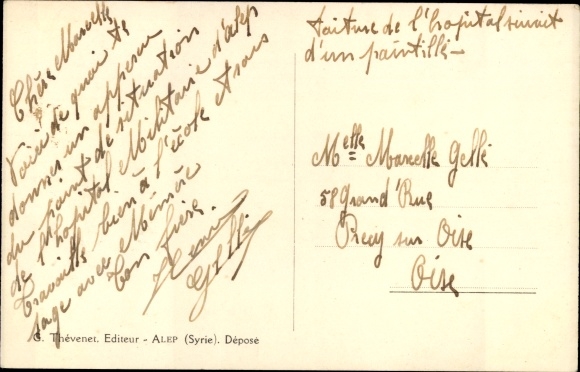 Chère Marcelle
Voici de quoi te
donner un apperçu
du point de situation
de l'hopital Militaire d'alep
travaille bien à l'école et sois
sage avec Mémère
Ton frère
Gellé
toiture de l'hopital suivit
d'un pointillé —
Melle Marcelle Gellé
58 Grand'Rue
Precy sur Oise
Oise
G. Thévenet. Editeur - ALEP (Syrie). Déposé